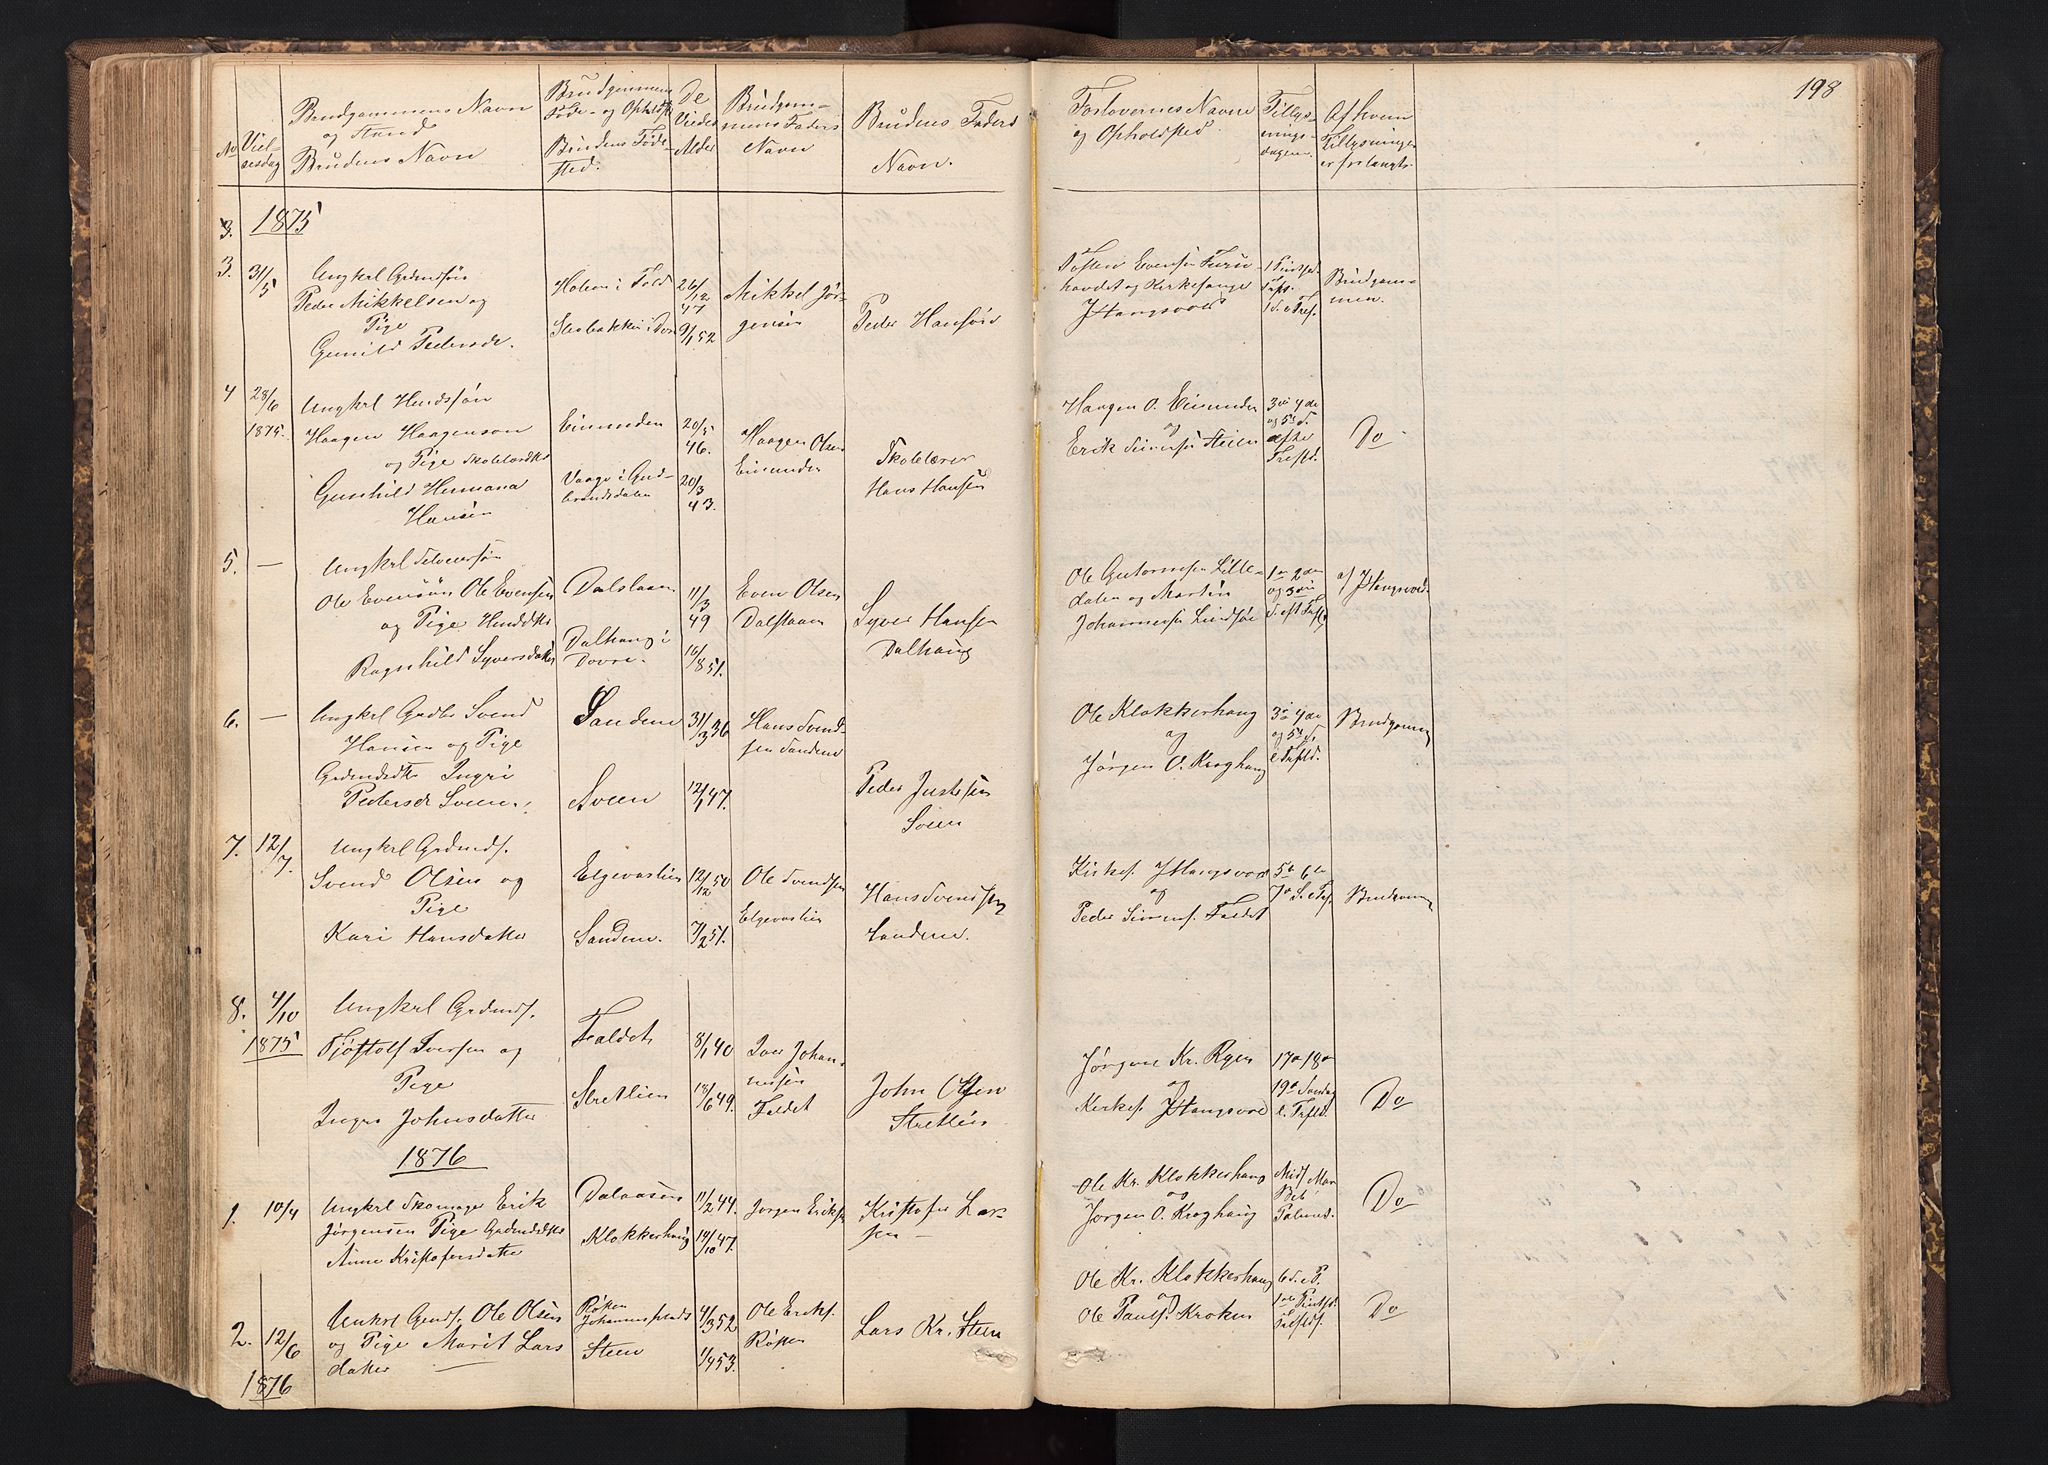 198
No
Viel-
sesdag
Brudgommens Navn
og Stand
Brudens Navn
Brudgommens
Føde- og Opholdsst
Brudens Føde-
sted.
De
Viedes
Alder
Brudgom-
mens Faders
Navn
Brudens Faders
Navn.
Forlovernes Navne
og Opholdsted
Tillys-
nings-
dagene.
Af hvem
Tillysningen
er forlangt.
3. 1875
3. 31/5
Ungkrl Grdmdsön
Peder Mikkelsen og
Pige
Gunild Pedersdr.
Holen i Fold
i Dovre
26/12
47
9/1 52
Mikkel Jör-
gensen
Peder Hansön
Tosten Evensen Furu-
hovdet og Kirkesanger
J Hangsvold
1 Pintsed.
1 S. e Tref.
Brudgom-
men.
4 28/6
1875.
Ungkrl Hmdssön
Haagen Haagenson
og Pige Skolelærdtr
Gunhild Hermana
Hansen
Einunden
Vaage i Gud-
brandsdalen
20/5
46.
20/3
43.
Haagen Olsen
Einunden
Skolelærer
Hans Hansen
Haagen O. Einunden
og
Erik Simensen Steien
3die 4de
og 5te S.
efter
Trefld.
Do
5. —
Ungkrl
Ole Evensön Ole Evensen
og Pige Hmddtr
Ragnhild Syversdatter
Dalslaaen
Dalhaug i
Dovre.
11/3
49
16/8 51.
Even Olsen
Dalslaaen
Syver Hansen
Dalhaug
Ole Guttormsen Lille-
dalen og Martin
Johannessen Lindsöe
1ste 2den
og 3die
S. eft Trefl
af J Hangsvold.
6. —
Ungkrl Grdbr Svend
Hansen og Pige
Grdmdsdtr Ingri
Pedersdr Sveen.
Sandene
Sveen
31/3 36
12/1 47.
Hans Svend-
sen Sandene
Peder Justesen
Sveen
Ole Klokkerhaug
og
Jørgen O. Kroghaug
3die 4de
og 5te S.
e Trefld.
Brudgommen
7. 12/7
Ungkrl Grdmds.
Svend Olsen og
Pige
Kari Hansdatter
Elgevaslien
Sandene.
12/12 50
7/2 51.
Ole Svendsen
Elgevaslien
Hans Svendsen
Sandene.
Kirkes. J Hangsvold
og
Peder Simens. Faldet
5te 6te
7de S. e Tref.
Brudgommen
8. 4/10
1875
Ungkrl Grdmds.
Tjøstolf Iversen og
Pige
Ingri Johnsdatter
Faldet
Stretlien
8/1 40
18/6 49.
Iver Johan-
nesen
Faldet
John Olsen
Stretlien
Jørgen Kr. Ryen
og
Kirkes. J Hangsvold
17de 18de
19de Søndag
e. Trefld.
Do
1876
1. 10/4
Ungkrl Skomager Erik
Jørgensen Pige Grdmddtr
Anne Kristofersdatter
Dalaasen
Klokkerhaug
11/2 44.
14/10 47.
Jørgen Eriksen
Kristofer Lar-
sen —
Ole Kr. Klokkerhaug
og
Jørgen O. Kroghaug
Midf Mar
Beb
Palmsd.
Do
2. 12/6
1876
Unkrl Grdmds. Ole Olsen
og Pige Marit Lars
datter —
Røsten
Johannesplads
Steen
4/3 52
1/4 53.
Ole Eriks.
Røsten
Lars Kr. Steen
Ole Kr. Klokkerhaug
og
Ole Pauls. Kroken
6 S. e P.
1ste Pintsd.
Do